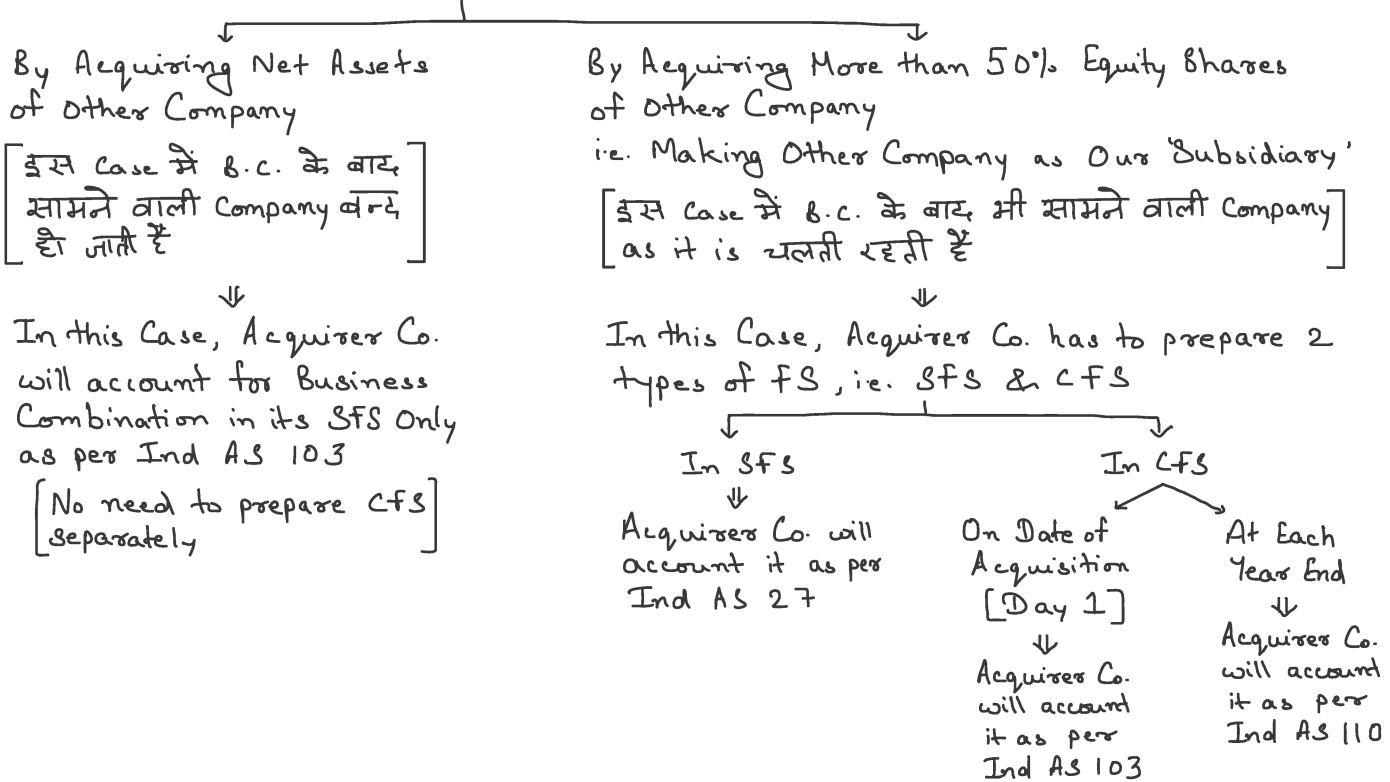 By Acquiring Net Assets
of Other Company
[इस Case में B.C. के बाद
सामने वाली Company बन्द
हो जाती है]
In this Case, Acquirer Co.
will account for Business
Combination in its SFS Only
as per Ind AS 103
[No need to prepare CFS
separately]
By Acquiring More than 50% Equity Shares
of Other Company
i.e. Making Other Company as Our 'Subsidiary'
[इस Case में B.C. के बाद भी सामने वाली Company
as it is चलती रहती है]
In this Case, Acquirer Co. has to prepare 2
types of FS, i.e. SFS & CFS
In SFS
Acquirer Co. will
account it as per
Ind AS 27
In CFS
On Date of
Acquisition
[Day 1]
Acquirer Co.
will account
it as per
Ind AS 103
At Each
Year End
Acquirer Co.
will account
it as per
Ind AS 110